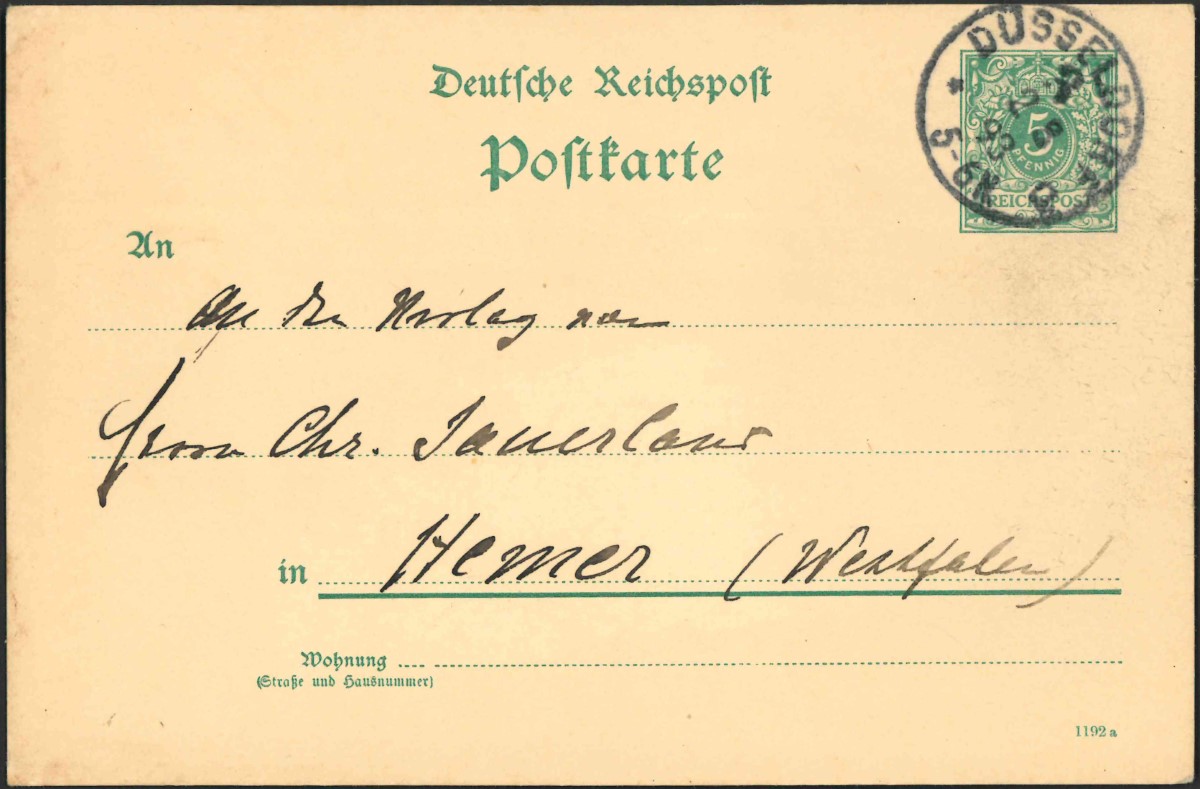 Deutsche Reichspost
Postkarte
DÜSSELDORF
5-6N
93
5
PFENNIG
REICHSPOST
An
An den Verlag von
Herrn Chr. Sauerland
in Hemer (Westfalen)
Wohnung
(Straße und Hausnummer)
1192a